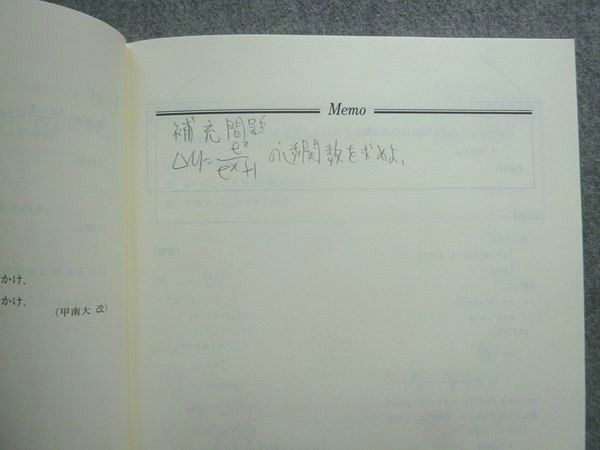 Memo
補充問題
△y=e^x/(e^x+1) の逆関数を求めよ、
かけ.
かけ.
(甲南大 改)